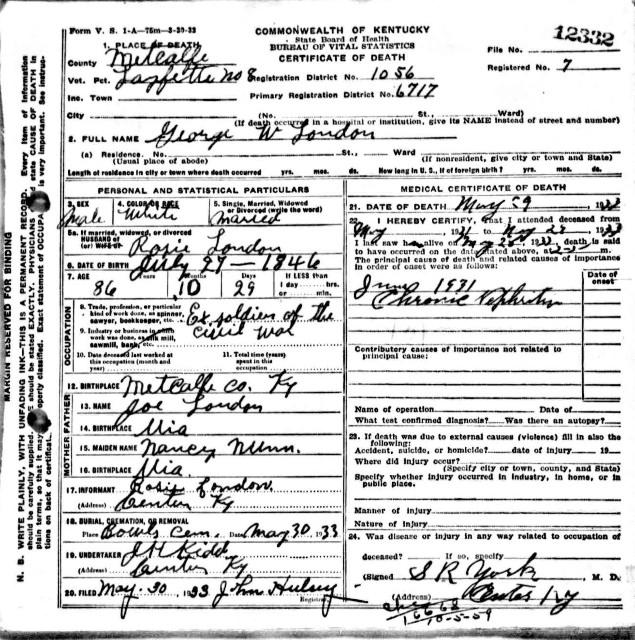 Form V. S. 1-A—75m—3-29-33
COMMONWEALTH OF KENTUCKY
State Board of Health
BUREAU OF VITAL STATISTICS
CERTIFICATE OF DEATH
12332
File No.
Registered No. 7
1. PLACE OF DEATH
County Metcalfe
Vot. Pct. Laffette No 8 Registration District No. 1056
Inc. Town Primary Registration District No. 6717
City (No. St., Ward)
(If death occurred in a hospital or institution, give its NAME instead of street and number)
2. FULL NAME George W London
(a) Residence. No. St., Ward
(Usual place of abode) (If nonresident, give city or town and State)
Length of residence in city or town where death occurred yrs. mos. ds. How long in U. S., if of foreign birth? yrs. mos. ds.
PERSONAL AND STATISTICAL PARTICULARS
3. SEX 4. COLOR OR RACE 5. Single, Married, Widowed
or Divorced (write the word)
Male White Married
5a. If married, widowed, or divorced
HUSBAND of
Rosie London
6. DATE OF BIRTH July 27—1846
7. AGE Months Days If LESS than
1 day hrs.
or min.
86 10 29
OCCUPATION
8. Trade, profession, or particular
kind of work done, as spinner,
sawyer, bookkeeper, etc. Ex soldier of the
9. Industry or business in which
work was done, as silk mill,
sawmill, bank, etc. Civil War
10. Date deceased last worked at
this occupation (month and
year)
11. Total time (years)
spent in this
occupation
12. BIRTHPLACE Metcalfe Co. Ky
FATHER
13. NAME Joe London
14. BIRTHPLACE Via
MOTHER
15. MAIDEN NAME Nancy Nunn.
16. BIRTHPLACE Via.
17. INFORMANT Rosie London.
(Address) Center Ky
18. BURIAL, CREMATION, OR REMOVAL
Place Bowls Cem. Date May 30, 1933
19. UNDERTAKER J H Kidd
(Address) Center Ky
20. FILED May. 30, 1933 John Hulsey
Registrar
MEDICAL CERTIFICATE OF DEATH
21. DATE OF DEATH May 29, 1933
22. I HEREBY CERTIFY, that I attended deceased from
May, 1931 to May 29, 1933
I last saw h alive on May 28, 1933, death is said
to have occurred on the date stated above, at m.
The principal cause of death and related causes of importance
in order of onset were as follows:
Date of
onset
June 1931
Chronic Nephritis
Contributory causes of importance not related to
principal cause:
Name of operation Date of
What test confirmed diagnosis? Was there an autopsy?
23. If death was due to external causes (violence) fill in also the
following:
Accident, suicide, or homicide? date of injury 19
Where did injury occur?
(Specify city or town, county, and State)
Specify whether injury occurred in industry, in home, or in
public place.
Manner of injury
Nature of injury
24. Was disease or injury in any way related to occupation of
deceased? If so, specify
(Signed S R York M. D.
(Address) Center Ky
16668
10-5-59
MARGIN RESERVED FOR BINDING
N. B. WRITE PLAINLY, WITH UNFADING INK—THIS IS A PERMANENT RECORD. Every item of information
should be carefully supplied. should be stated EXACTLY. PHYSICIANS state CAUSE OF DEATH in
plain terms, so that it may properly classified. Exact statement of OCCUPA is very important. See instruc-
tions on back of certificat